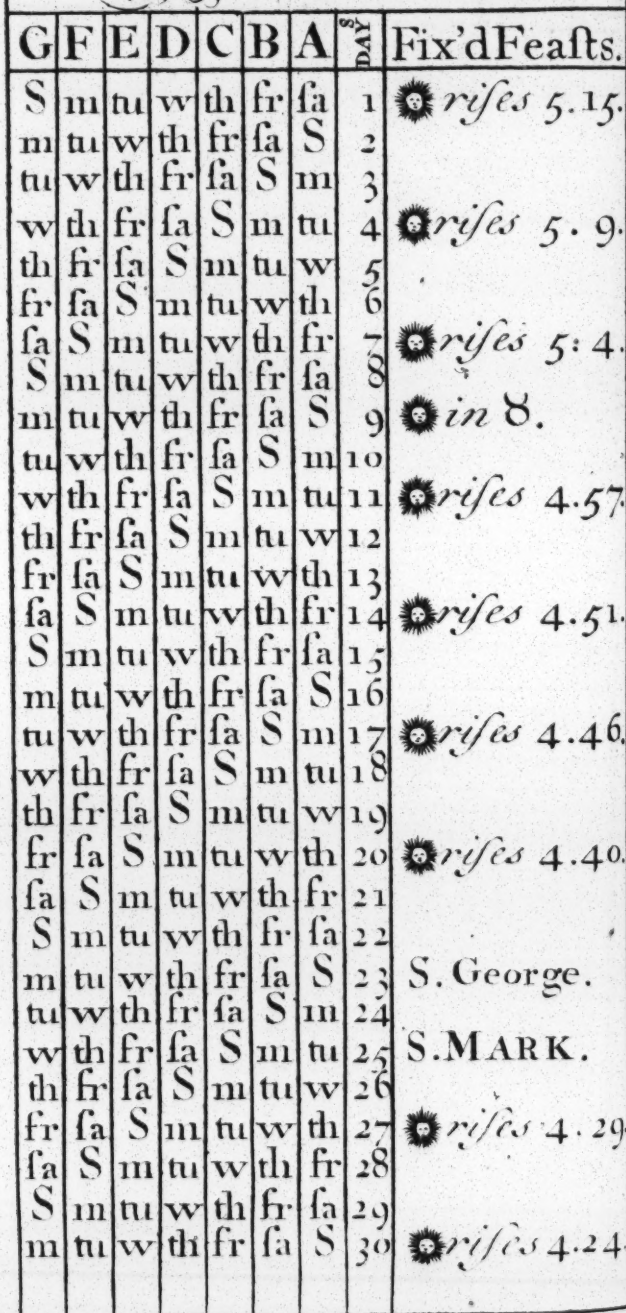 G F E D C B A DAYS Fix'd Feaſts.
S m tu w th fr ſa 1 riſes 5.15.
m tu w th fr ſa S 2
tu w th fr ſa S m 3
w th fr ſa S m tu 4 riſes 5.9.
th fr ſa S m tu w 5
fr ſa S m tu w th 6
ſa S m tu w th fr 7 riſes 5:4.
S m tu w th fr ſa 8
m tu w th fr ſa S 9 in ♉.
tu w th fr ſa S m 10
w th fr ſa S m tu 11 riſes 4.57
th fr ſa S m tu w 12
fr ſa S m tu w th 13
ſa S m tu w th fr 14 riſes 4.51.
S m tu w th fr ſa 15
m tu w th fr ſa S 16
tu w th fr ſa S m 17 riſes 4.46.
w th fr ſa S m tu 18
th fr ſa S m tu w 19
fr ſa S m tu w th 20 riſes 4.40.
ſa S m tu w th fr 21
S m tu w th fr ſa 22
m tu w th fr ſa S 23 S. George.
tu w th fr ſa S m 24
w th fr ſa S m tu 25 S. MARK.
th fr ſa S m tu w 26
fr ſa S m tu w th 27 riſes 4.29
ſa S m tu w th fr 28
S m tu w th fr ſa 29
m tu w th fr ſa S 30 riſes 4.24.